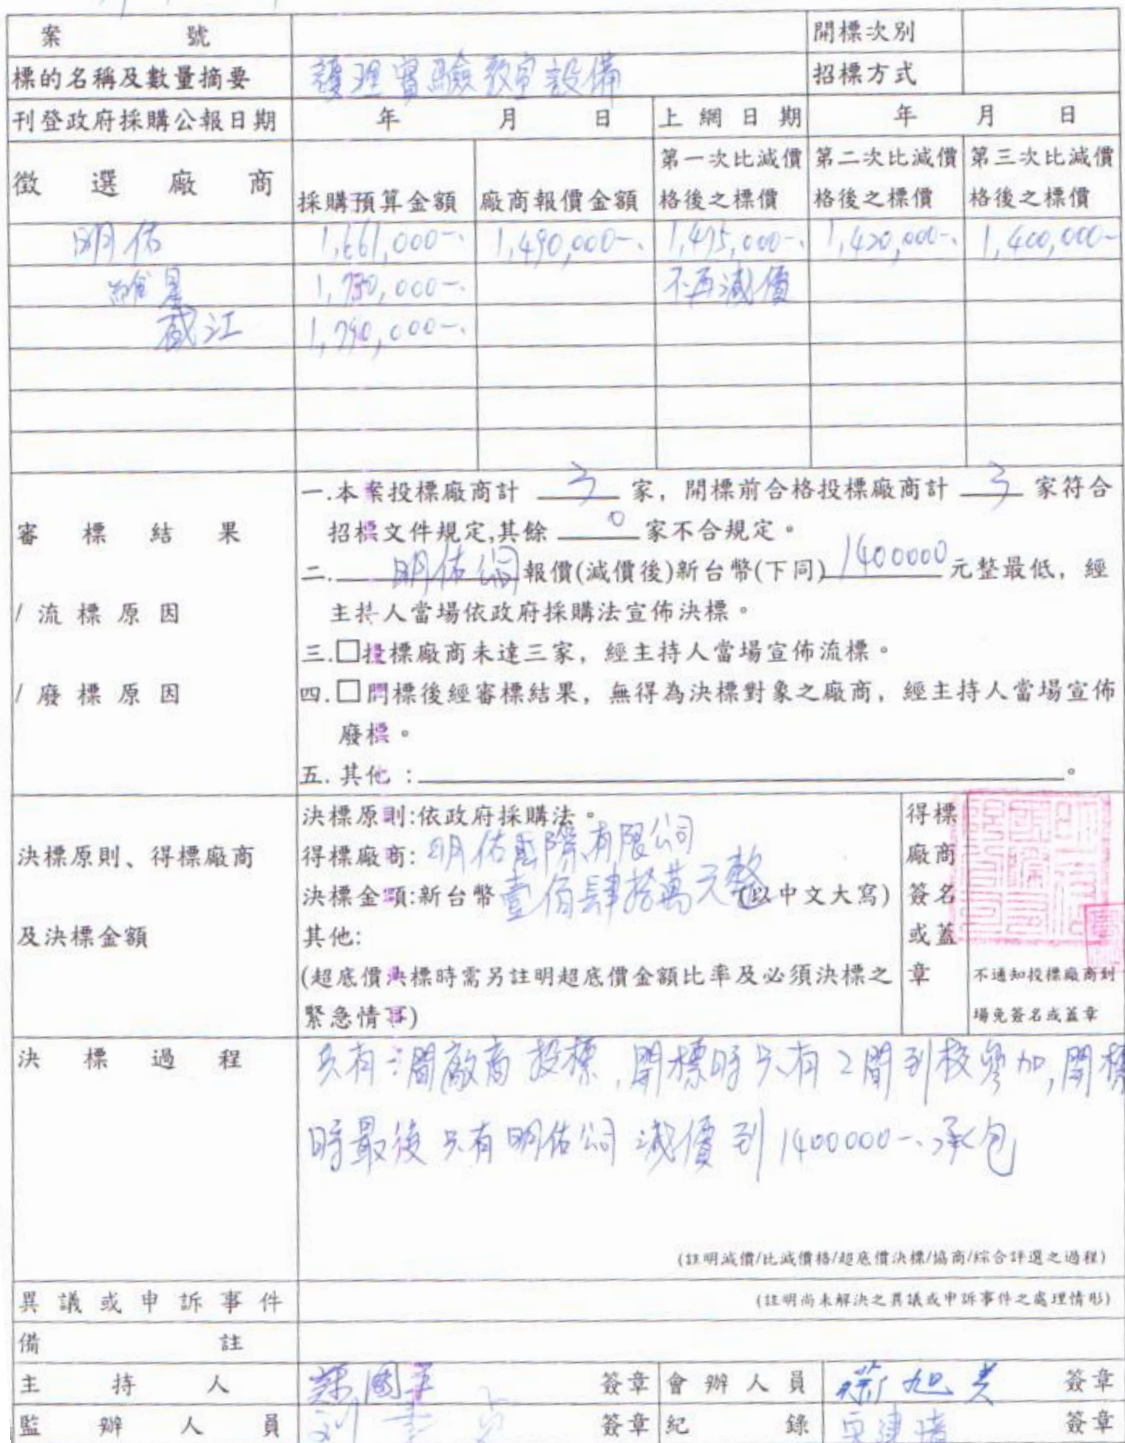 案 號 開標次別
標的名稱及數量摘要 護理實驗教室設備 招標方式
刊登政府採購公報日期 年 月 日 上網日期 年 月 日
徵選廠商 採購預算金額 廠商報價金額 第一次比減價格後之標價 第二次比減價格後之標價 第三次比減價格後之標價
明佑 1,661,000-. 1,490,000-. 1,475,000-. 1,420,000-. 1,400,000-
1,730,000-. 不再減價
1,790,000-.
審標結果
/流標原因
/廢標原因
一.本案投標廠商計 3 家,開標前合格投標廠商計 3 家符合
招標文件規定,其餘 0 家不合規定。
二. 明佑 報價(減價後)新台幣(下同) 1400000 元整最低,經
主持人當場依政府採購法宣佈決標。
三.□投標廠商未達三家,經主持人當場宣佈流標。
四.□開標後經審標結果,無得為決標對象之廠商,經主持人當場宣佈
廢標。
五.其他:。
決標原則、得標廠商
及決標金額
決標原則:依政府採購法。
得標廠商:明佑國際有限公司
決標金額:新台幣壹佰肆拾萬元整(以中文大寫)
其他:
(超底價決標時需另註明超底價金額比率及必須決標之
緊急情事)
得標
廠商
簽名
或蓋
章
不通知投標廠商到
場免簽名或蓋章
決標過程
只有三間廠商投標,開標時只有2間到校參加,開標
時最後只有明佑公司減價到1400000-.承包
(註明減價/比減價格/超底價決標/協商/綜合評選之過程)
異議或申訴事件 (註明尚未解決之異議或申訴事件之處理情形)
備註
主持人 簽章 會辦人員 簽章
監辦人員 簽章 紀錄 簽章